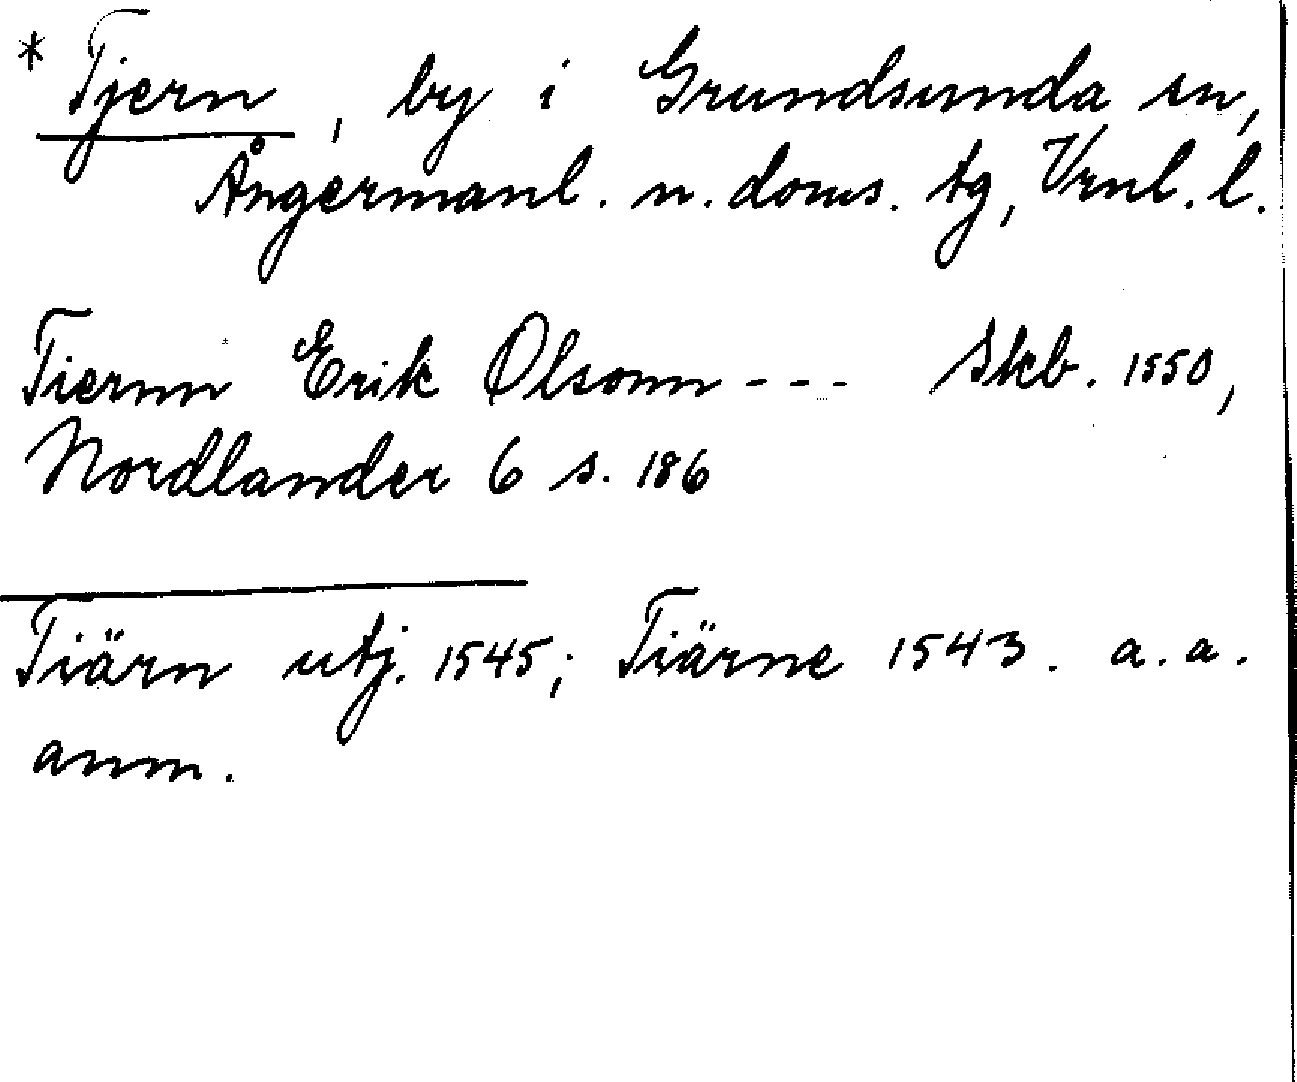 * Tjern, by i Grundsunda sn,
Ångermanl. n. doms. tg, Vrnl. l.
Tiernn Erik Olsonn - - - Skb. 1550,
Nordlander 6 s. 186
Tiärn utj. 1545; Tiärne 1543. a. a.
anm.